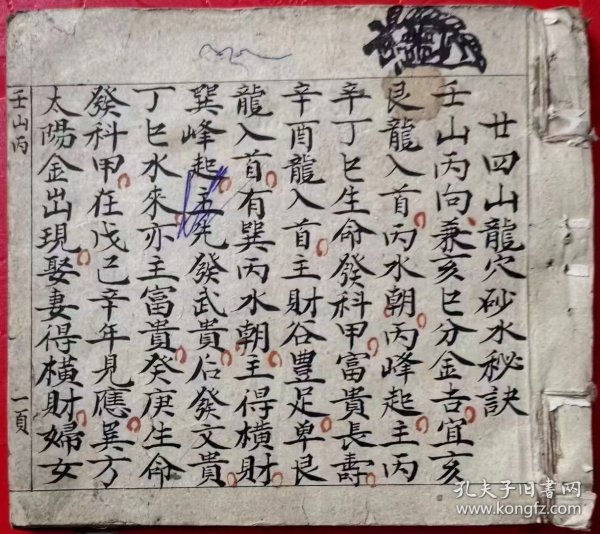 廿四山龍穴砂水秘訣
壬山丙向兼亥巳分金吉宜亥
艮龍入首丙水朝丙峰起主丙
辛丁巳生命發科甲富貴長壽
辛酉龍入首主財谷豊足卑艮
龍入首有巽丙水朝主得橫財
巽峰起主先發武貴后發文貴
丁巳水來亦主富貴癸庚生命
發科甲在戊己辛年見應巽方
太陽金出現娶妻得橫財婦女
壬山丙
一頁
孔夫子旧書网
www.kongfz.com